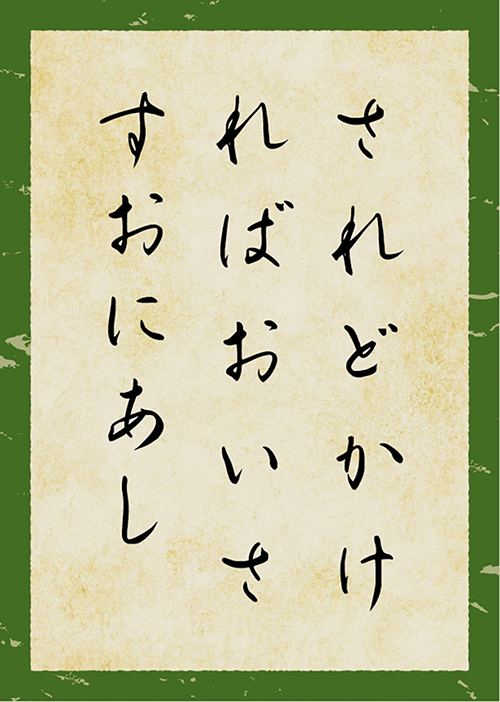 されどかけ
ればおいさ
すおにあし